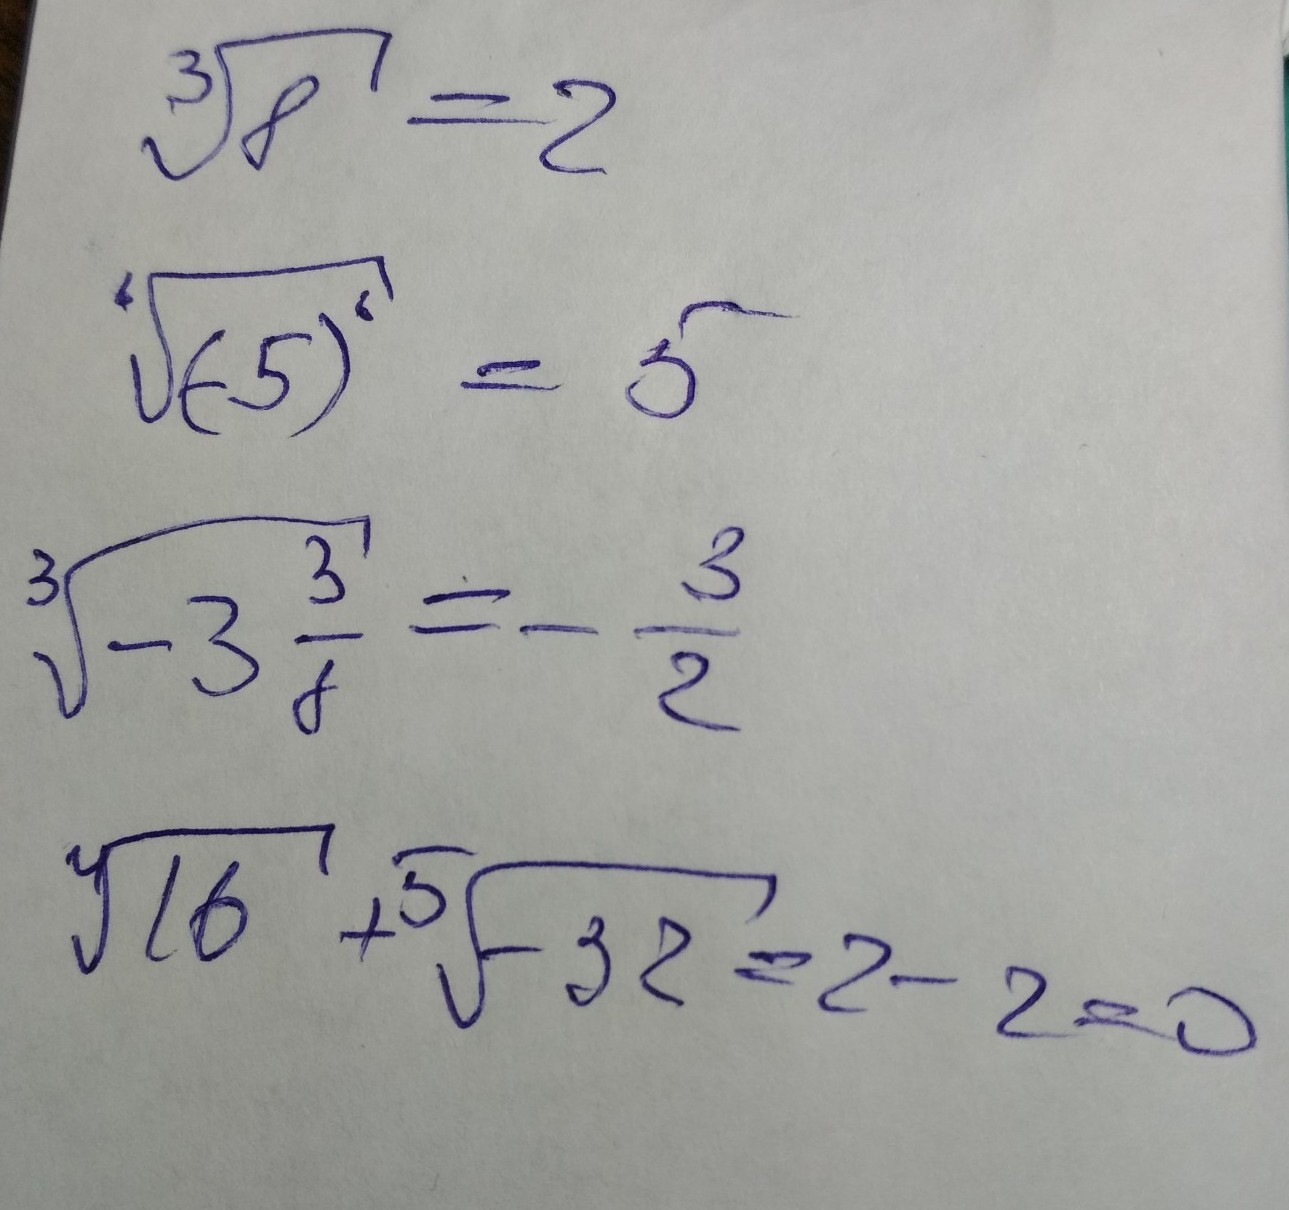 ∛8 = 2
⁶√(-5)⁶ = 5
∛-3 3/8 = - 3/2
⁴√16 + ⁵√-32 = 2 - 2 = 0